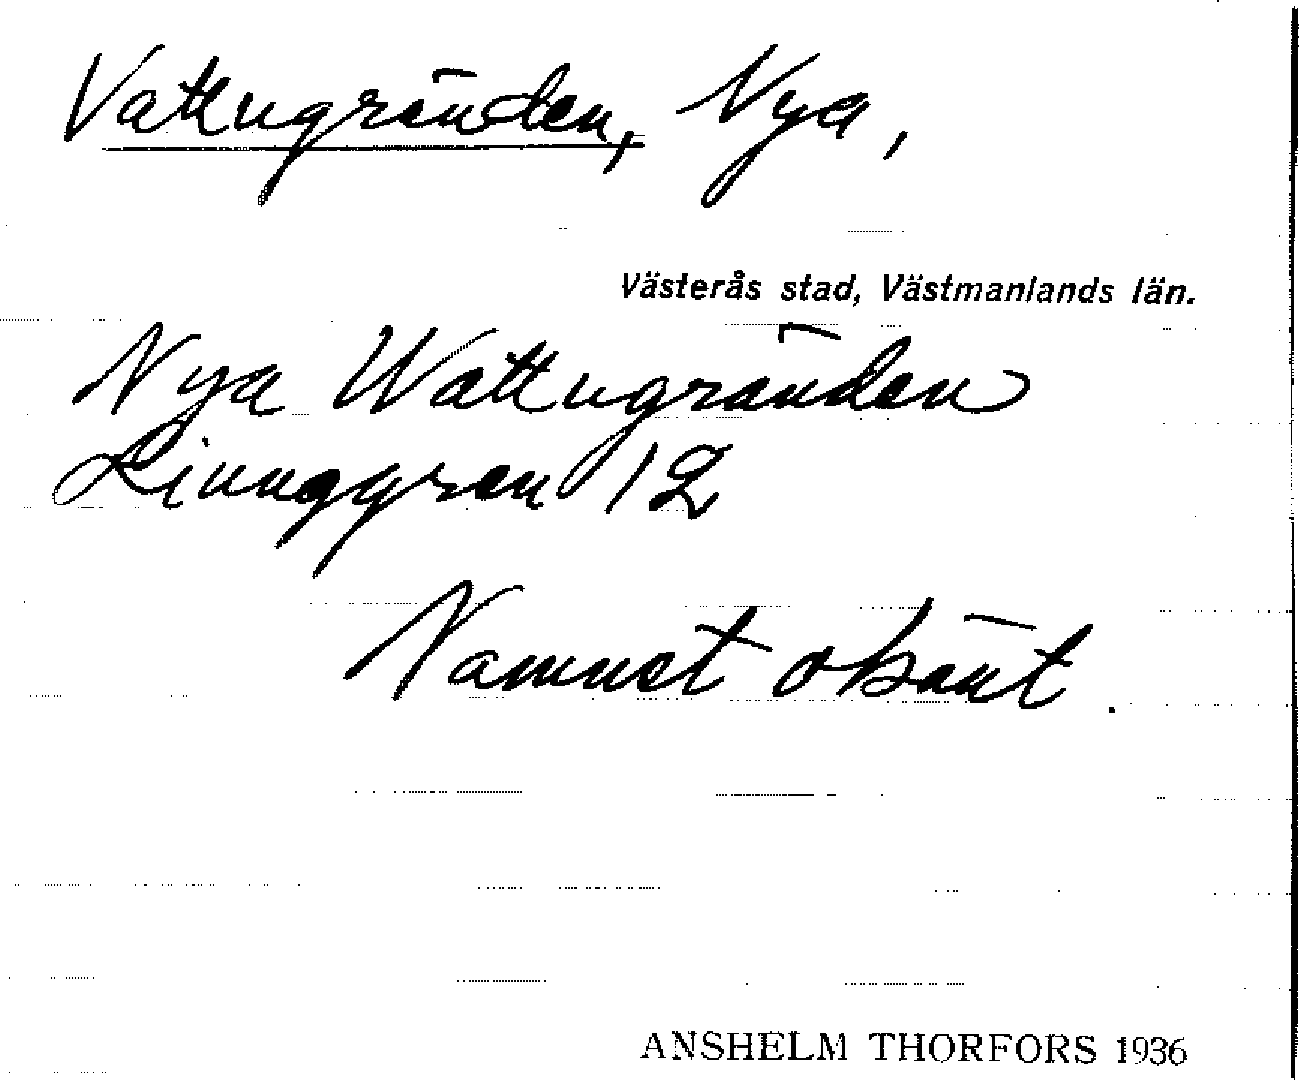 Vattugränden, Nya,
Västerås stad, Västmanlands län.
Nya Wattugränden
Liunggren 12
Namnet okänt.
ANSHELM THORFORS 1936